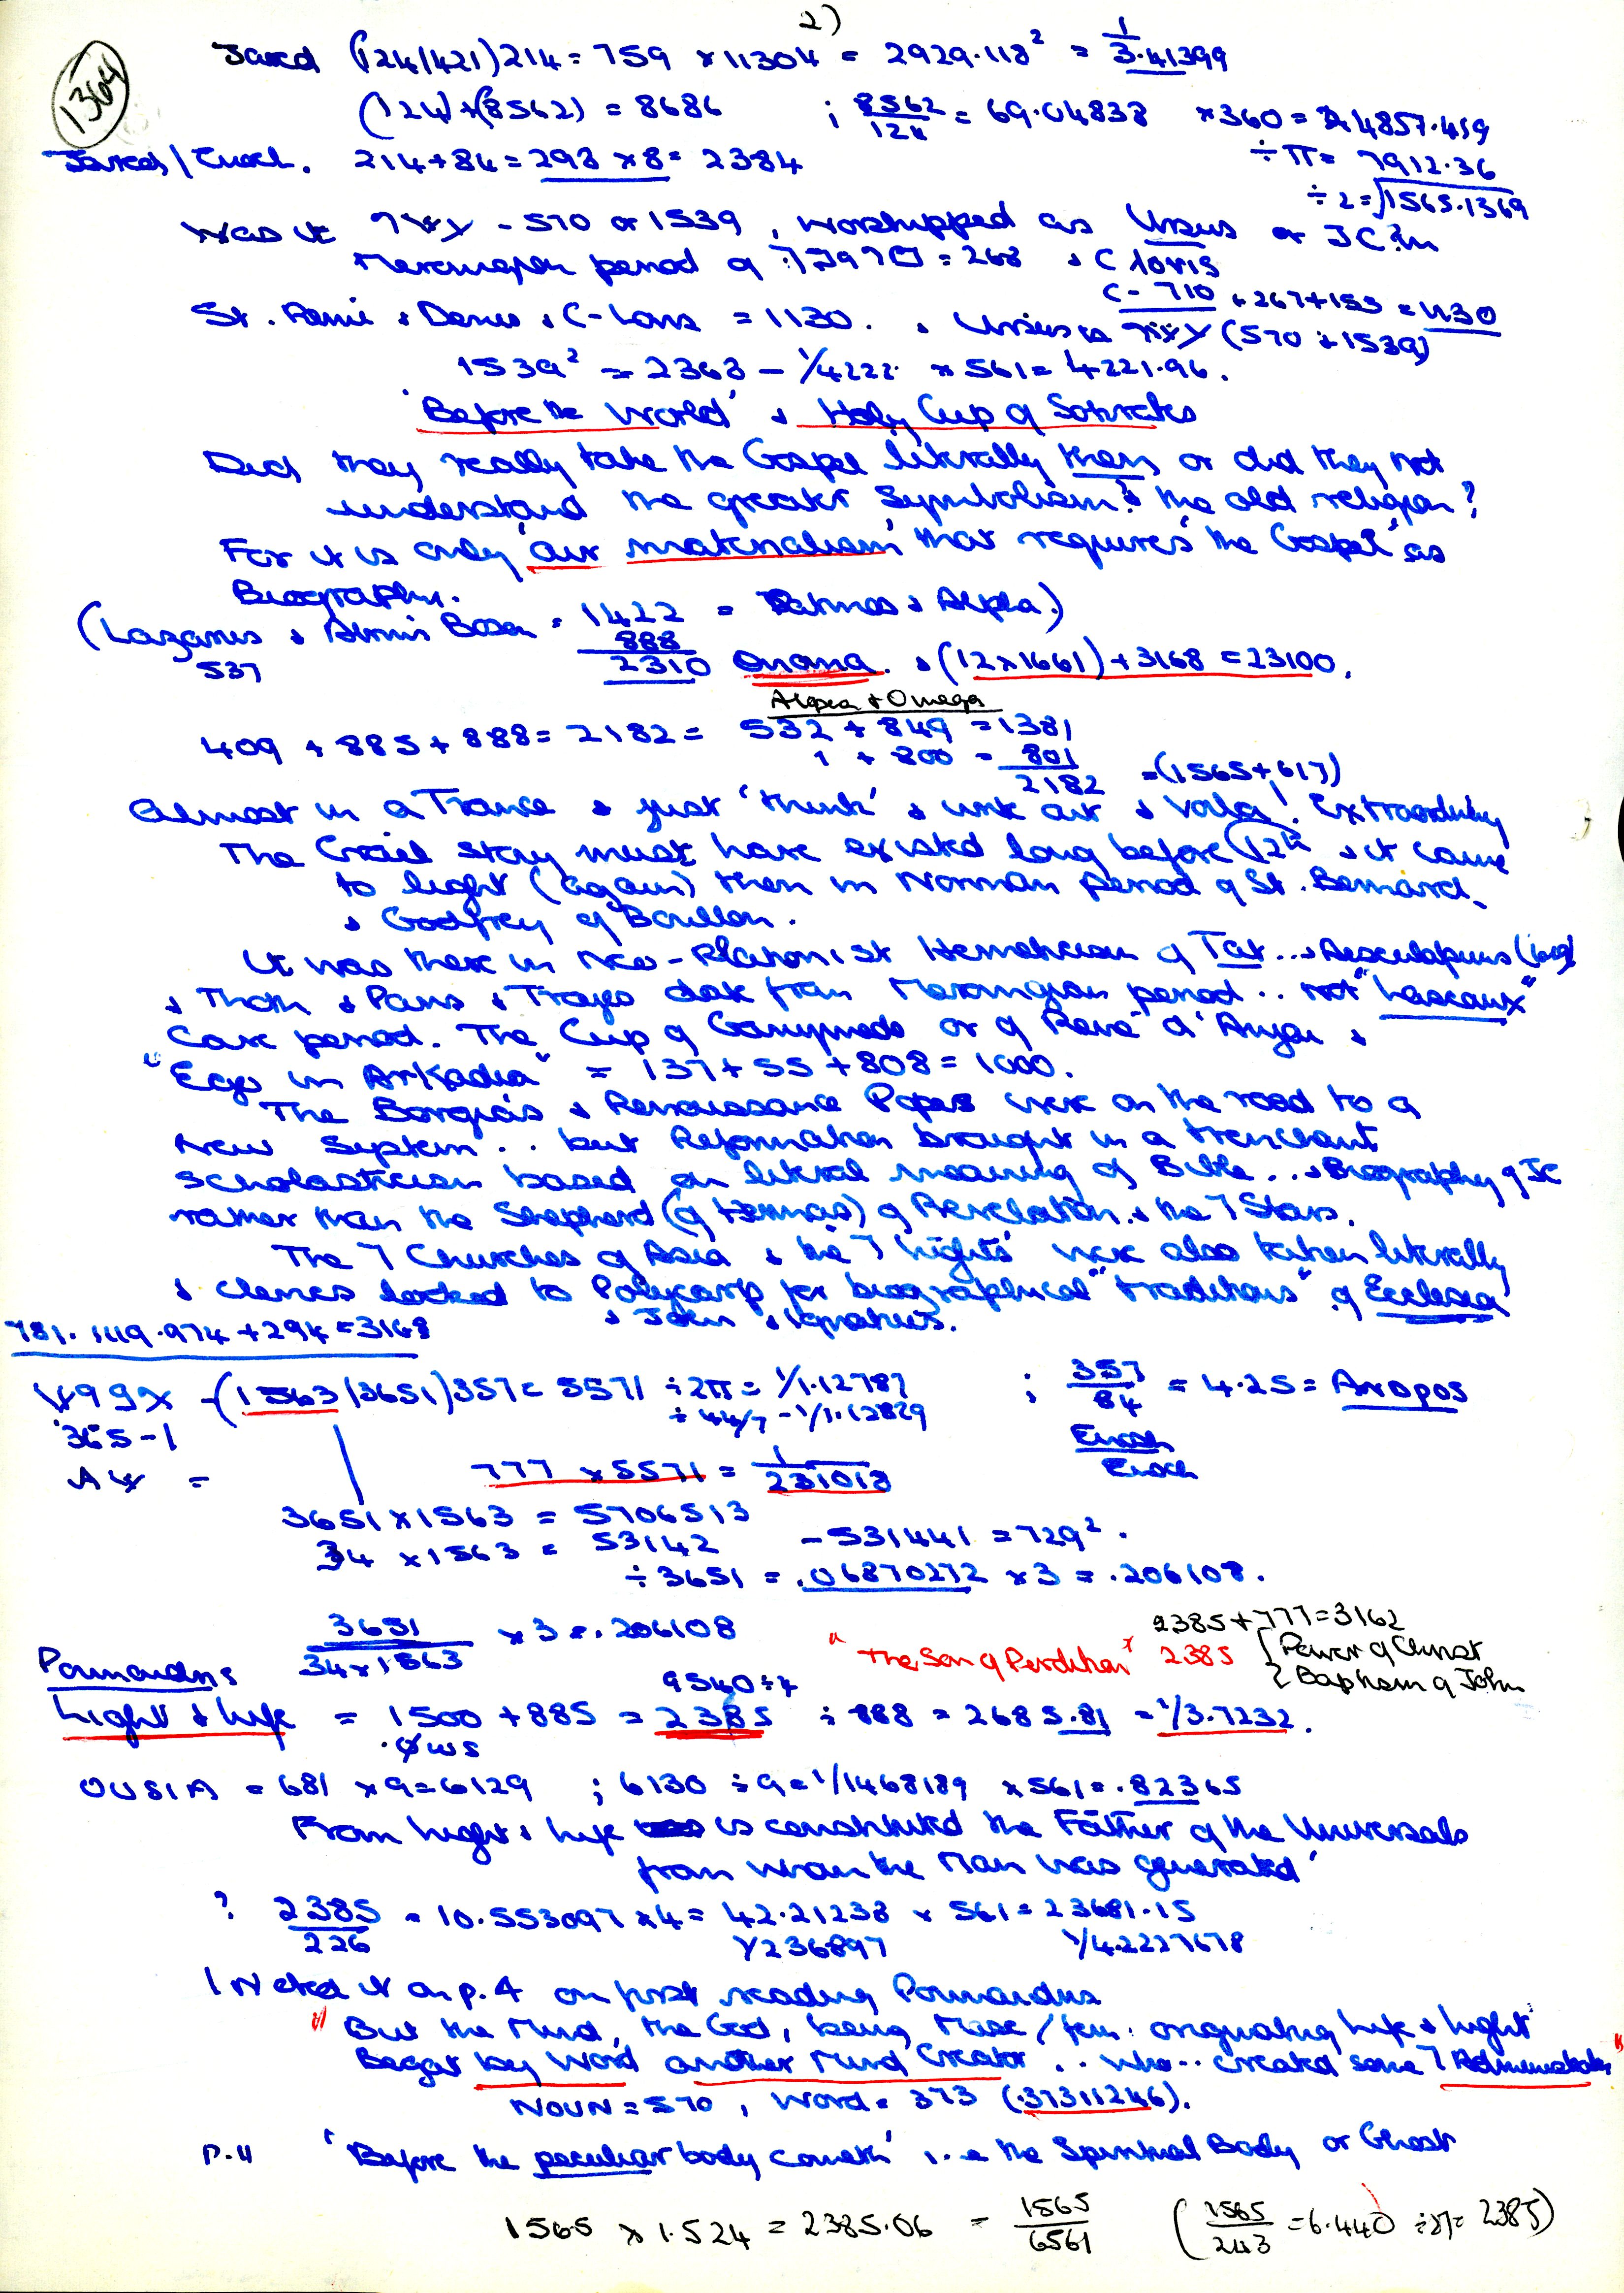 2)
1364
Jared (124/421) 214 = 759 × 11304 = 2929.118² = 1/3.41399
(124)+(8562) = 8686 ; 8562/124 = 69.04838 × 360 = 24857.419
÷ π = 7912.36
Jared/Enoch. 214+84 = 298 × 8 = 2384
÷ 2 = √1565.1369
Was it - 570 or 1539, worshipped as Ursus or JC? in
Merovingian period of = 268 & Clovis
C - 710 + 267 + 153 = 1130
St. Remi & Denis & C-Lovis = 1130. & Ursus is (570 & 1539)
1539² = 2368 - 1/4222 × 561 = 4221.96.
'Before the World' & Holy Cup of Sokrates
Did they really take the Gospel literally then or did they not
understand the greater Symbolism? & the old religion?
For it is only 'our materialism' that requires 'the Gospel' as
Biography.
(Lazarus & Bosem = 1422 = Patmos & Alpha)
537
888
2310 Onoma. & (12×1661)+3168 = 23100.
Alpha & Omega
409 + 885 + 888 = 2182 = 532 + 849 = 1381
1 + 800 = 801
2182 = (1565+617)
Almost in a Trance & just 'think' & work out & voila! Extraordinary
The Grail story must have existed long before 12th & it came
to light (again) then in Norman period of St. Bernard
& Godfrey of Bouillon.
It was there in Neo-Platonist Hermeticism of Tat... & Aesculapius
& Thoth & Paris & Troyes date from Merovingian period.. not "Lascaux"
Cave period. The Cup of Ganymede or of René d'Anjou &
"Ego in Arkadia" = 137 + 55 + 808 = 1000.
The Borgias & Renaissance Popes were on the road to a
New System.. but Reformation brought in a trenchant
scholasticism based on literal meaning of Bible... & Biography of JC
rather than the Shepherd (of Hermas) of Revelation & the 7 Stars.
The 7 Churches of Asia & the 7 lights' were also taken literally
& Clemes looked to Polycarp for biographical "traditions" of Ecclesia
& John & Ignatius.
781. 1119. 974 + 294 = 3168
- (1563/3651) 357 = 5571 ÷ 2π = 1/1.12787 ; 357/84 = 4.25 = Aropos
365-1
÷ 44/7 - 1/1.12829
Enosh
Enoch
777 × 5571 = 1/231018
3651 × 1563 = 5706513
34 × 1563 = 53142 - 531441 = 729².
÷ 3651 = .06870272 × 3 = .206108.
3651/34×1563 × 3 = .206108
2385 + 777 = 3162
"The Son of Perdition" 2385 {Power of Christ
{Baptism of John
Poimandres
9540 ÷ 4
Light & Life = 1500 + 885 = 2385 ÷ 888 = 2685.81 = 1/3.7232.
.φws
OUSIA = 681 × 9 = 6129 ; 6130 ÷ 9 = 1/1468189 × 561 = .82365
From light & life is constituted the Father of the Universals
from whom the Man was generated'
? 2385/226 = 10.553097 × 4 = 42.21238 × 561 = 23681.15
1/236897 1/4.2227678
I noted it on p.4 on first reading Poimandres
"But the Mind, the God, being Masc/fem. originating life & light
Begat by Word another Mind Creator'.. who.. created some 7 Administrators"
NOUN = 570, Word = 373 (.37311246).
P.11 'Before the peculiar body cometh' i.e the Spiritual Body or Ghost
1565 × 1.524 = 2385.06 - 1565/6561 (1565/243 = 6.440 ÷ 27 = 2385)